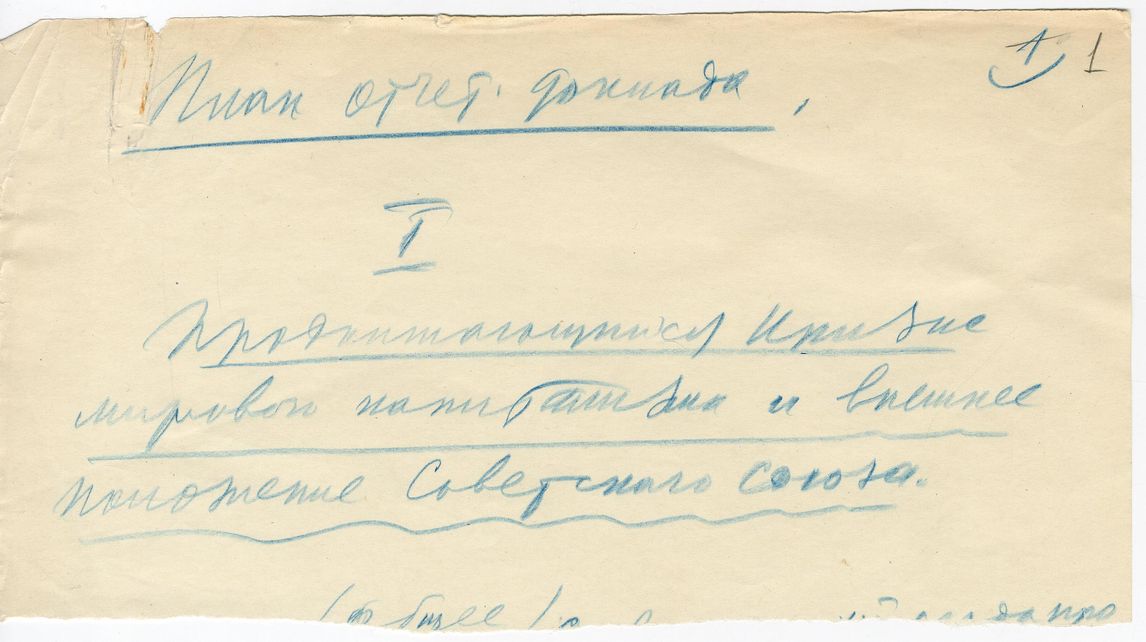 1 1
План отчет. доклада,
I
Продолжающийся кризис
мирового капитализма и внешнее
положение Советского Союза.